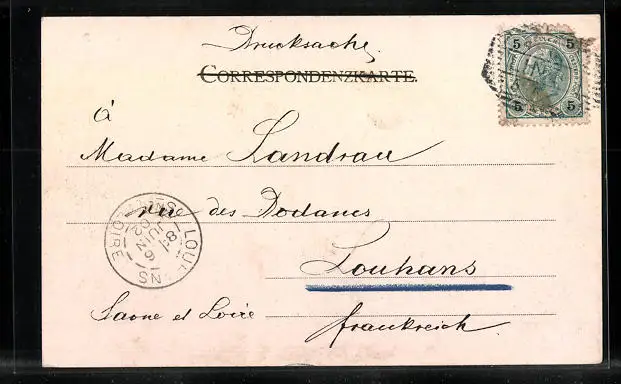 Drucksache.
CORRESPONDENZKARTE.
5 5
5 5
à
Madame Landrau
rue des Dodanes
Louhans
Saone et Loire
frankreich.
LOUHANS
SNE-ET-LOIRE
6 JUIN 02